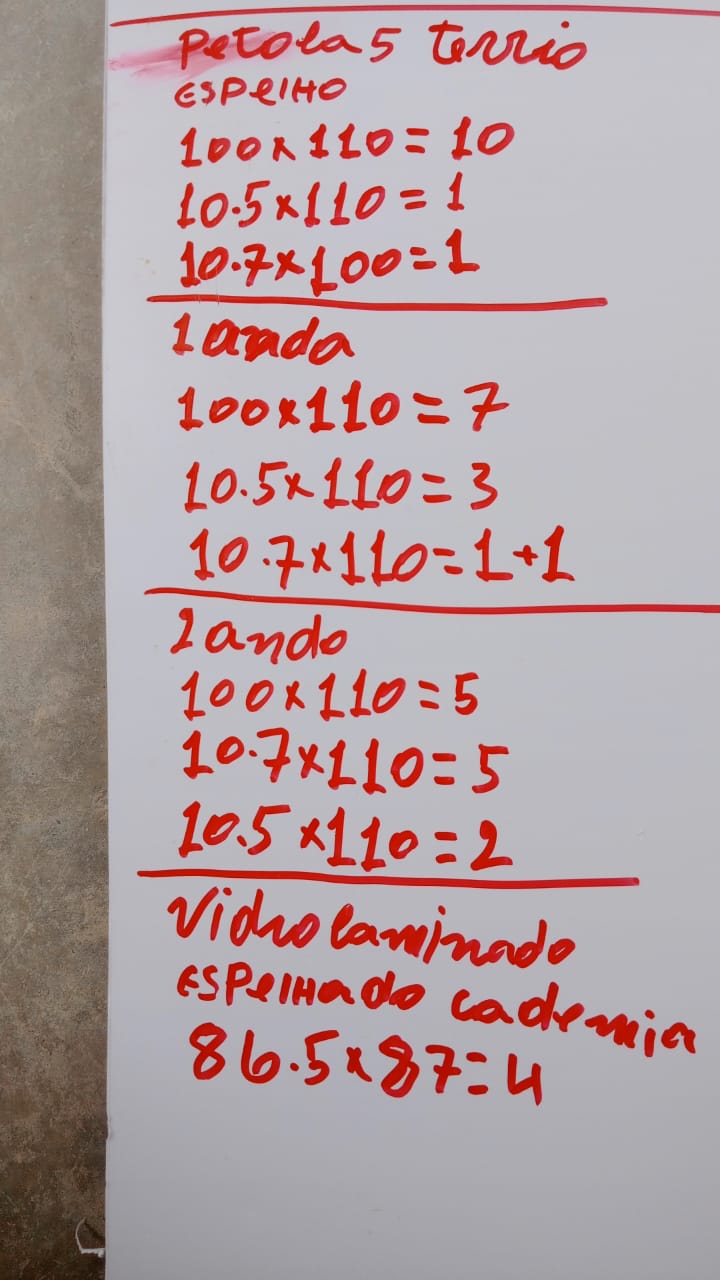 Petola 5 terrio
ESPelHO
100x110=10
10.5x110=1
10.7x100=1
1 anda
100x110=7
10.5x110=3
10.7x110=1+1
2 ando
100x110=5
10.7x110=5
10.5x110=2
Vidro laminado
ESPelHado cademia
86.5x87=4